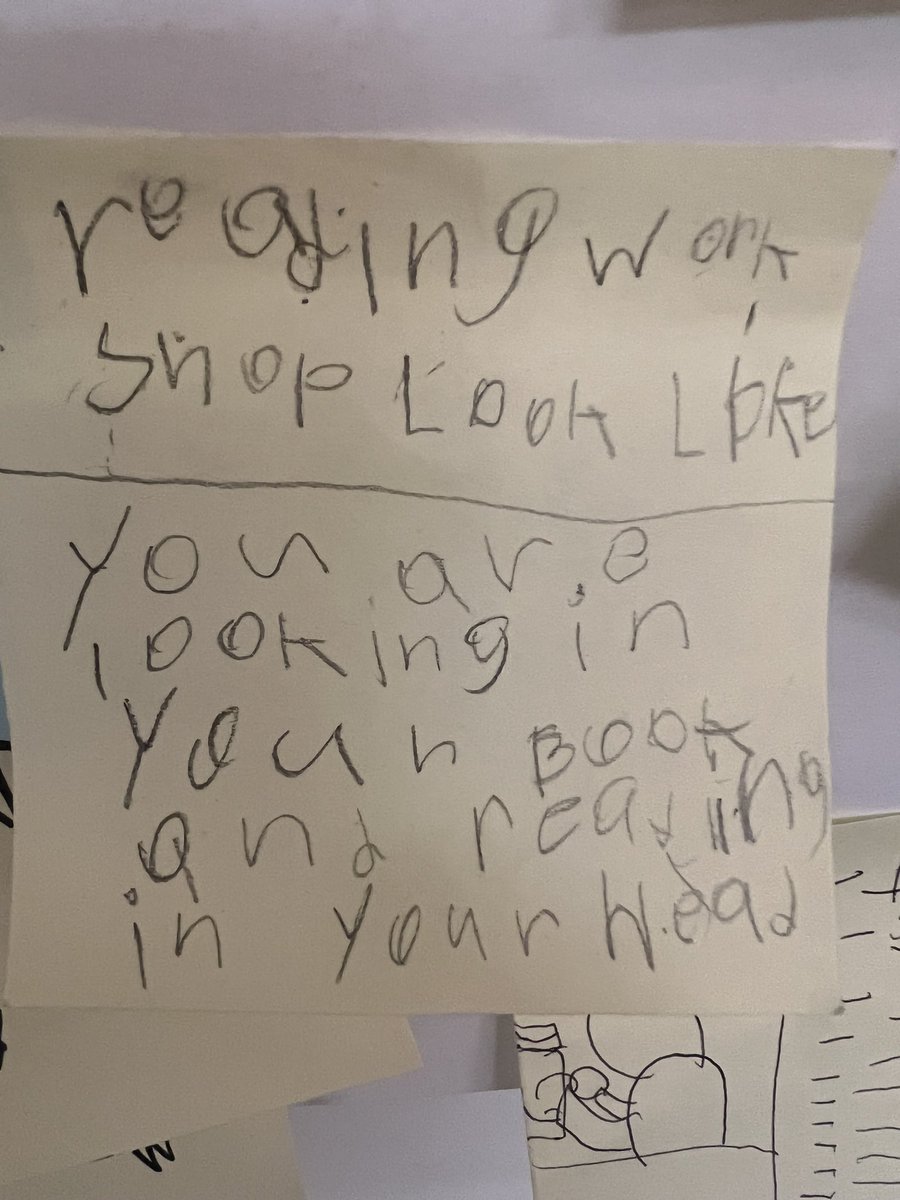 reading work
shop Look Like
you are
looking in
Your Book
and reading
in your Head
w